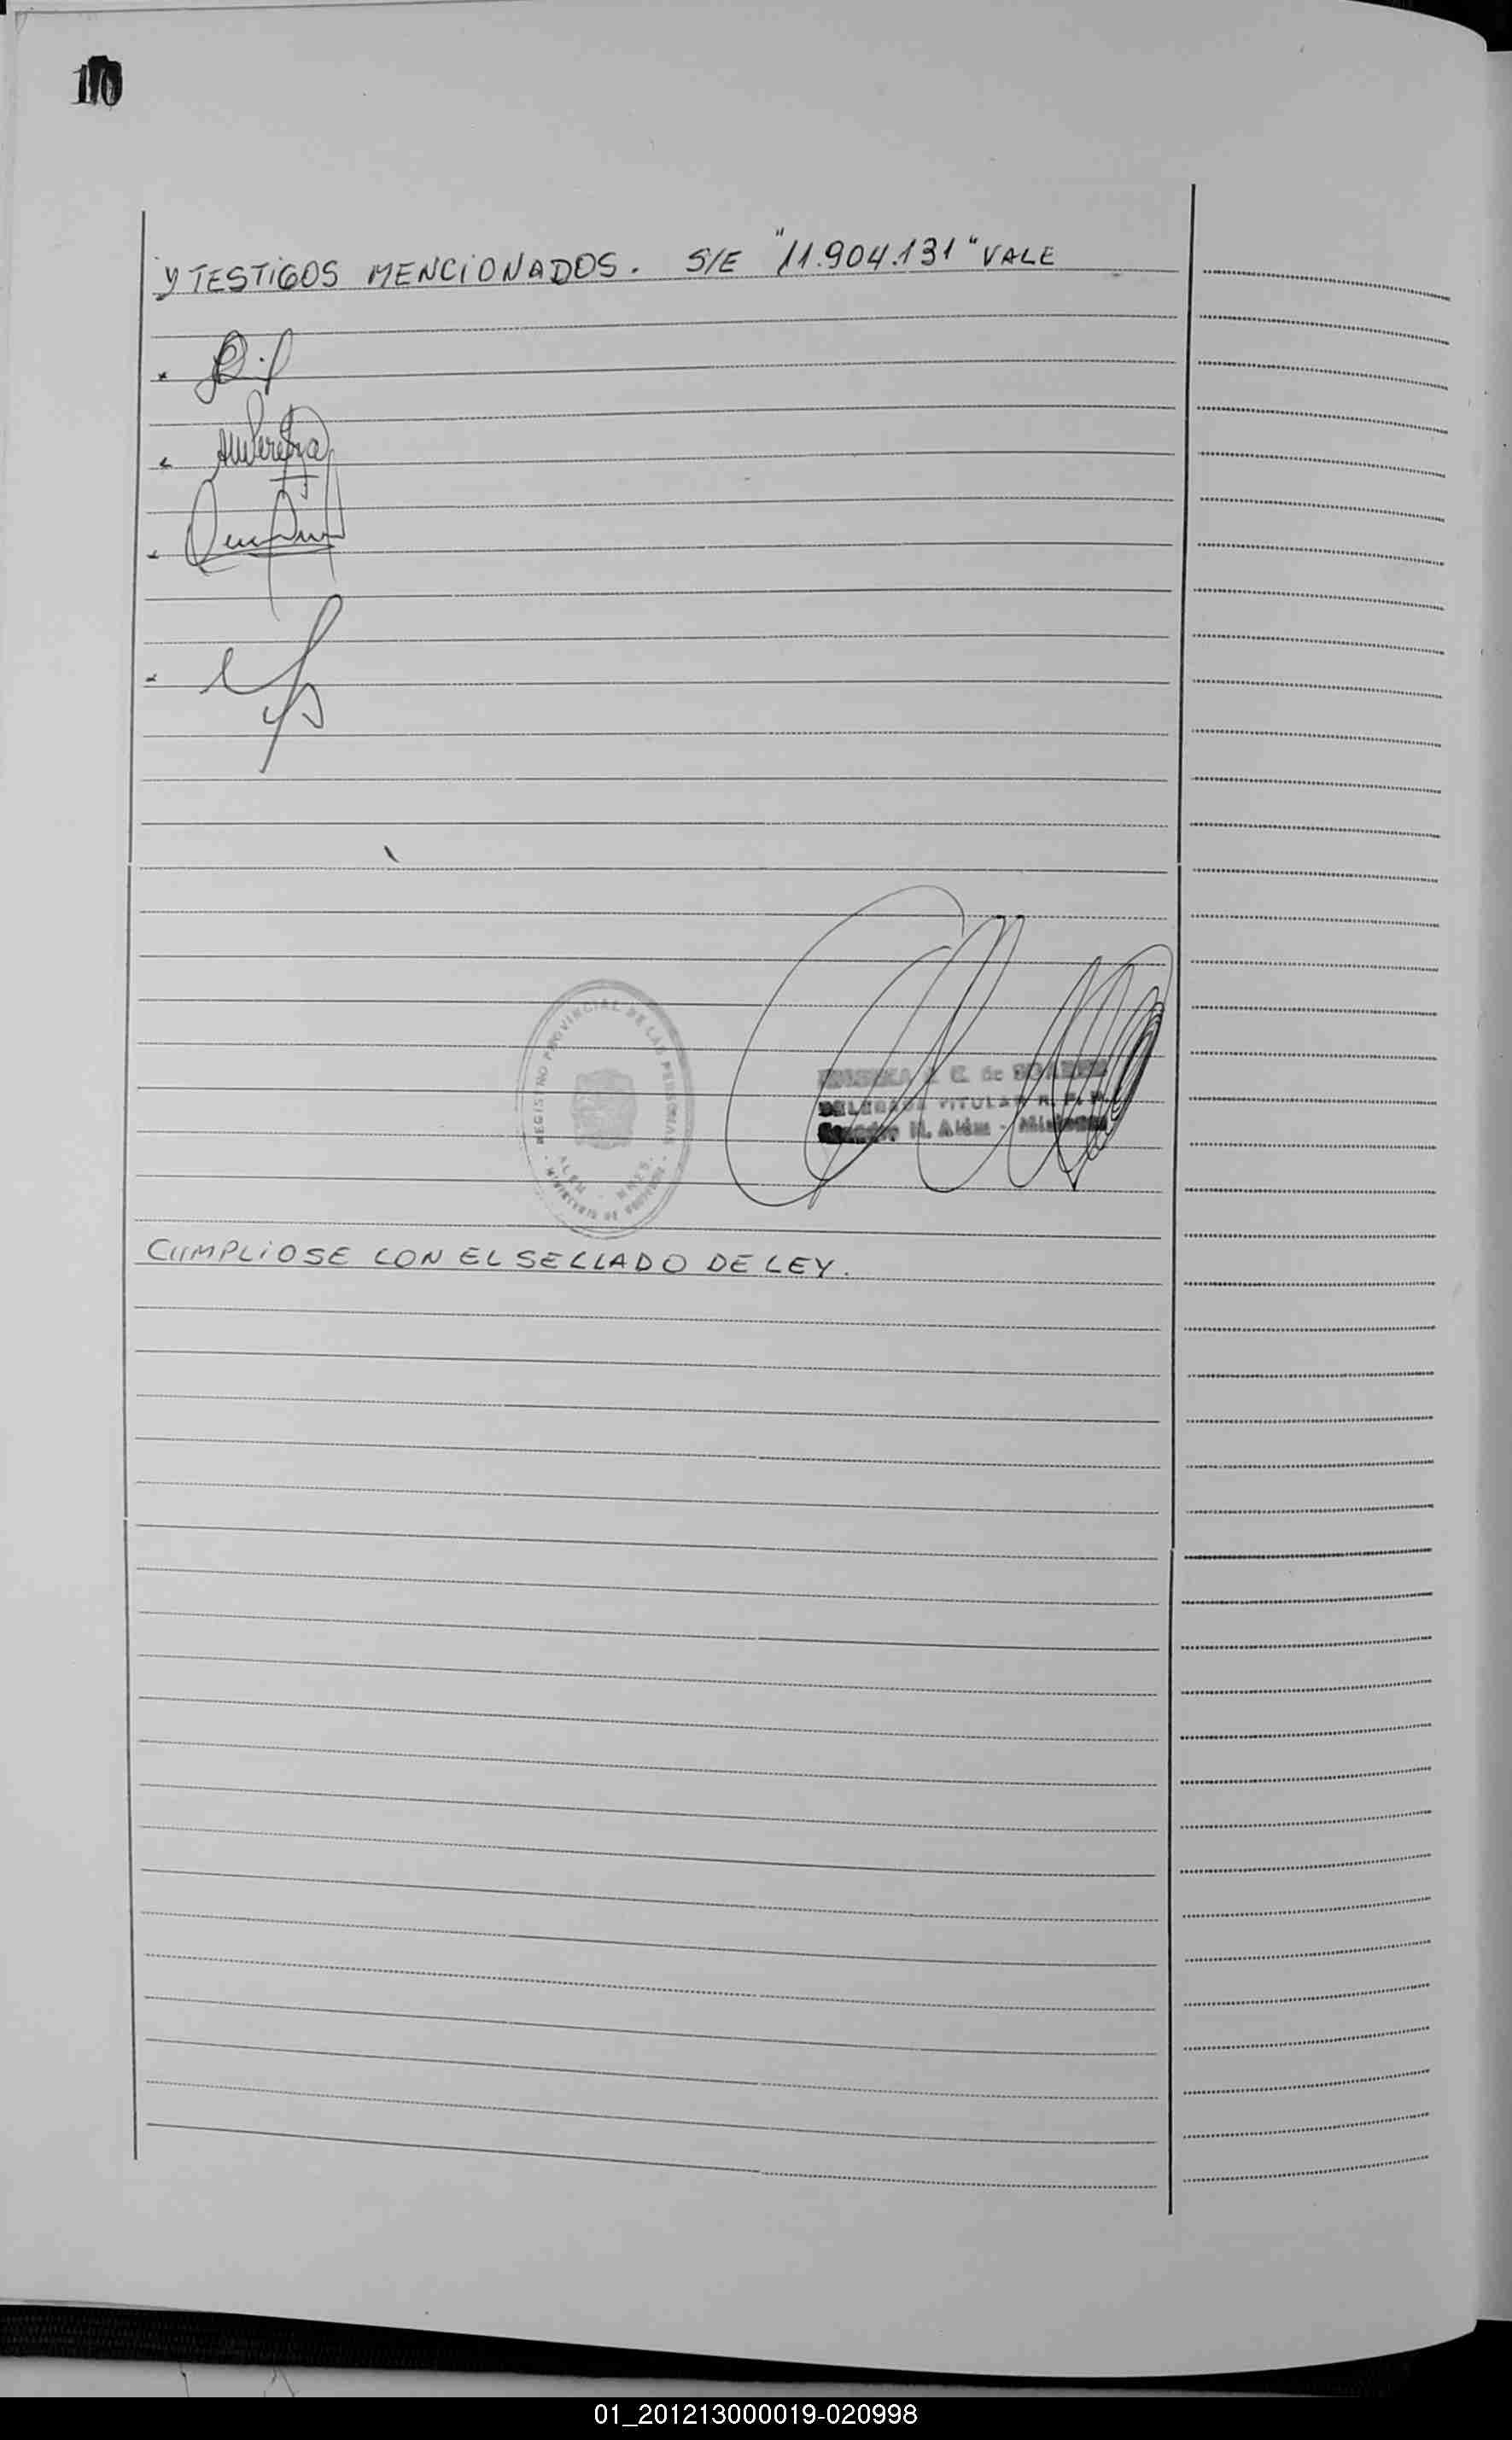 Y TESTIGOS MENCIONADOS. S/E "11.904.131" VALE
REGISTRO PROVINCIAL DE LAS PERSONAS
ALEM - MNES.
MINISTERIO DE GOBIERNO
de
DELEGADA TITULAR R. P. P.
Leandro N. Alem - Misiones
CUMPLIOSE CON EL SELLADO DE LEY.
01_201213000019-020998